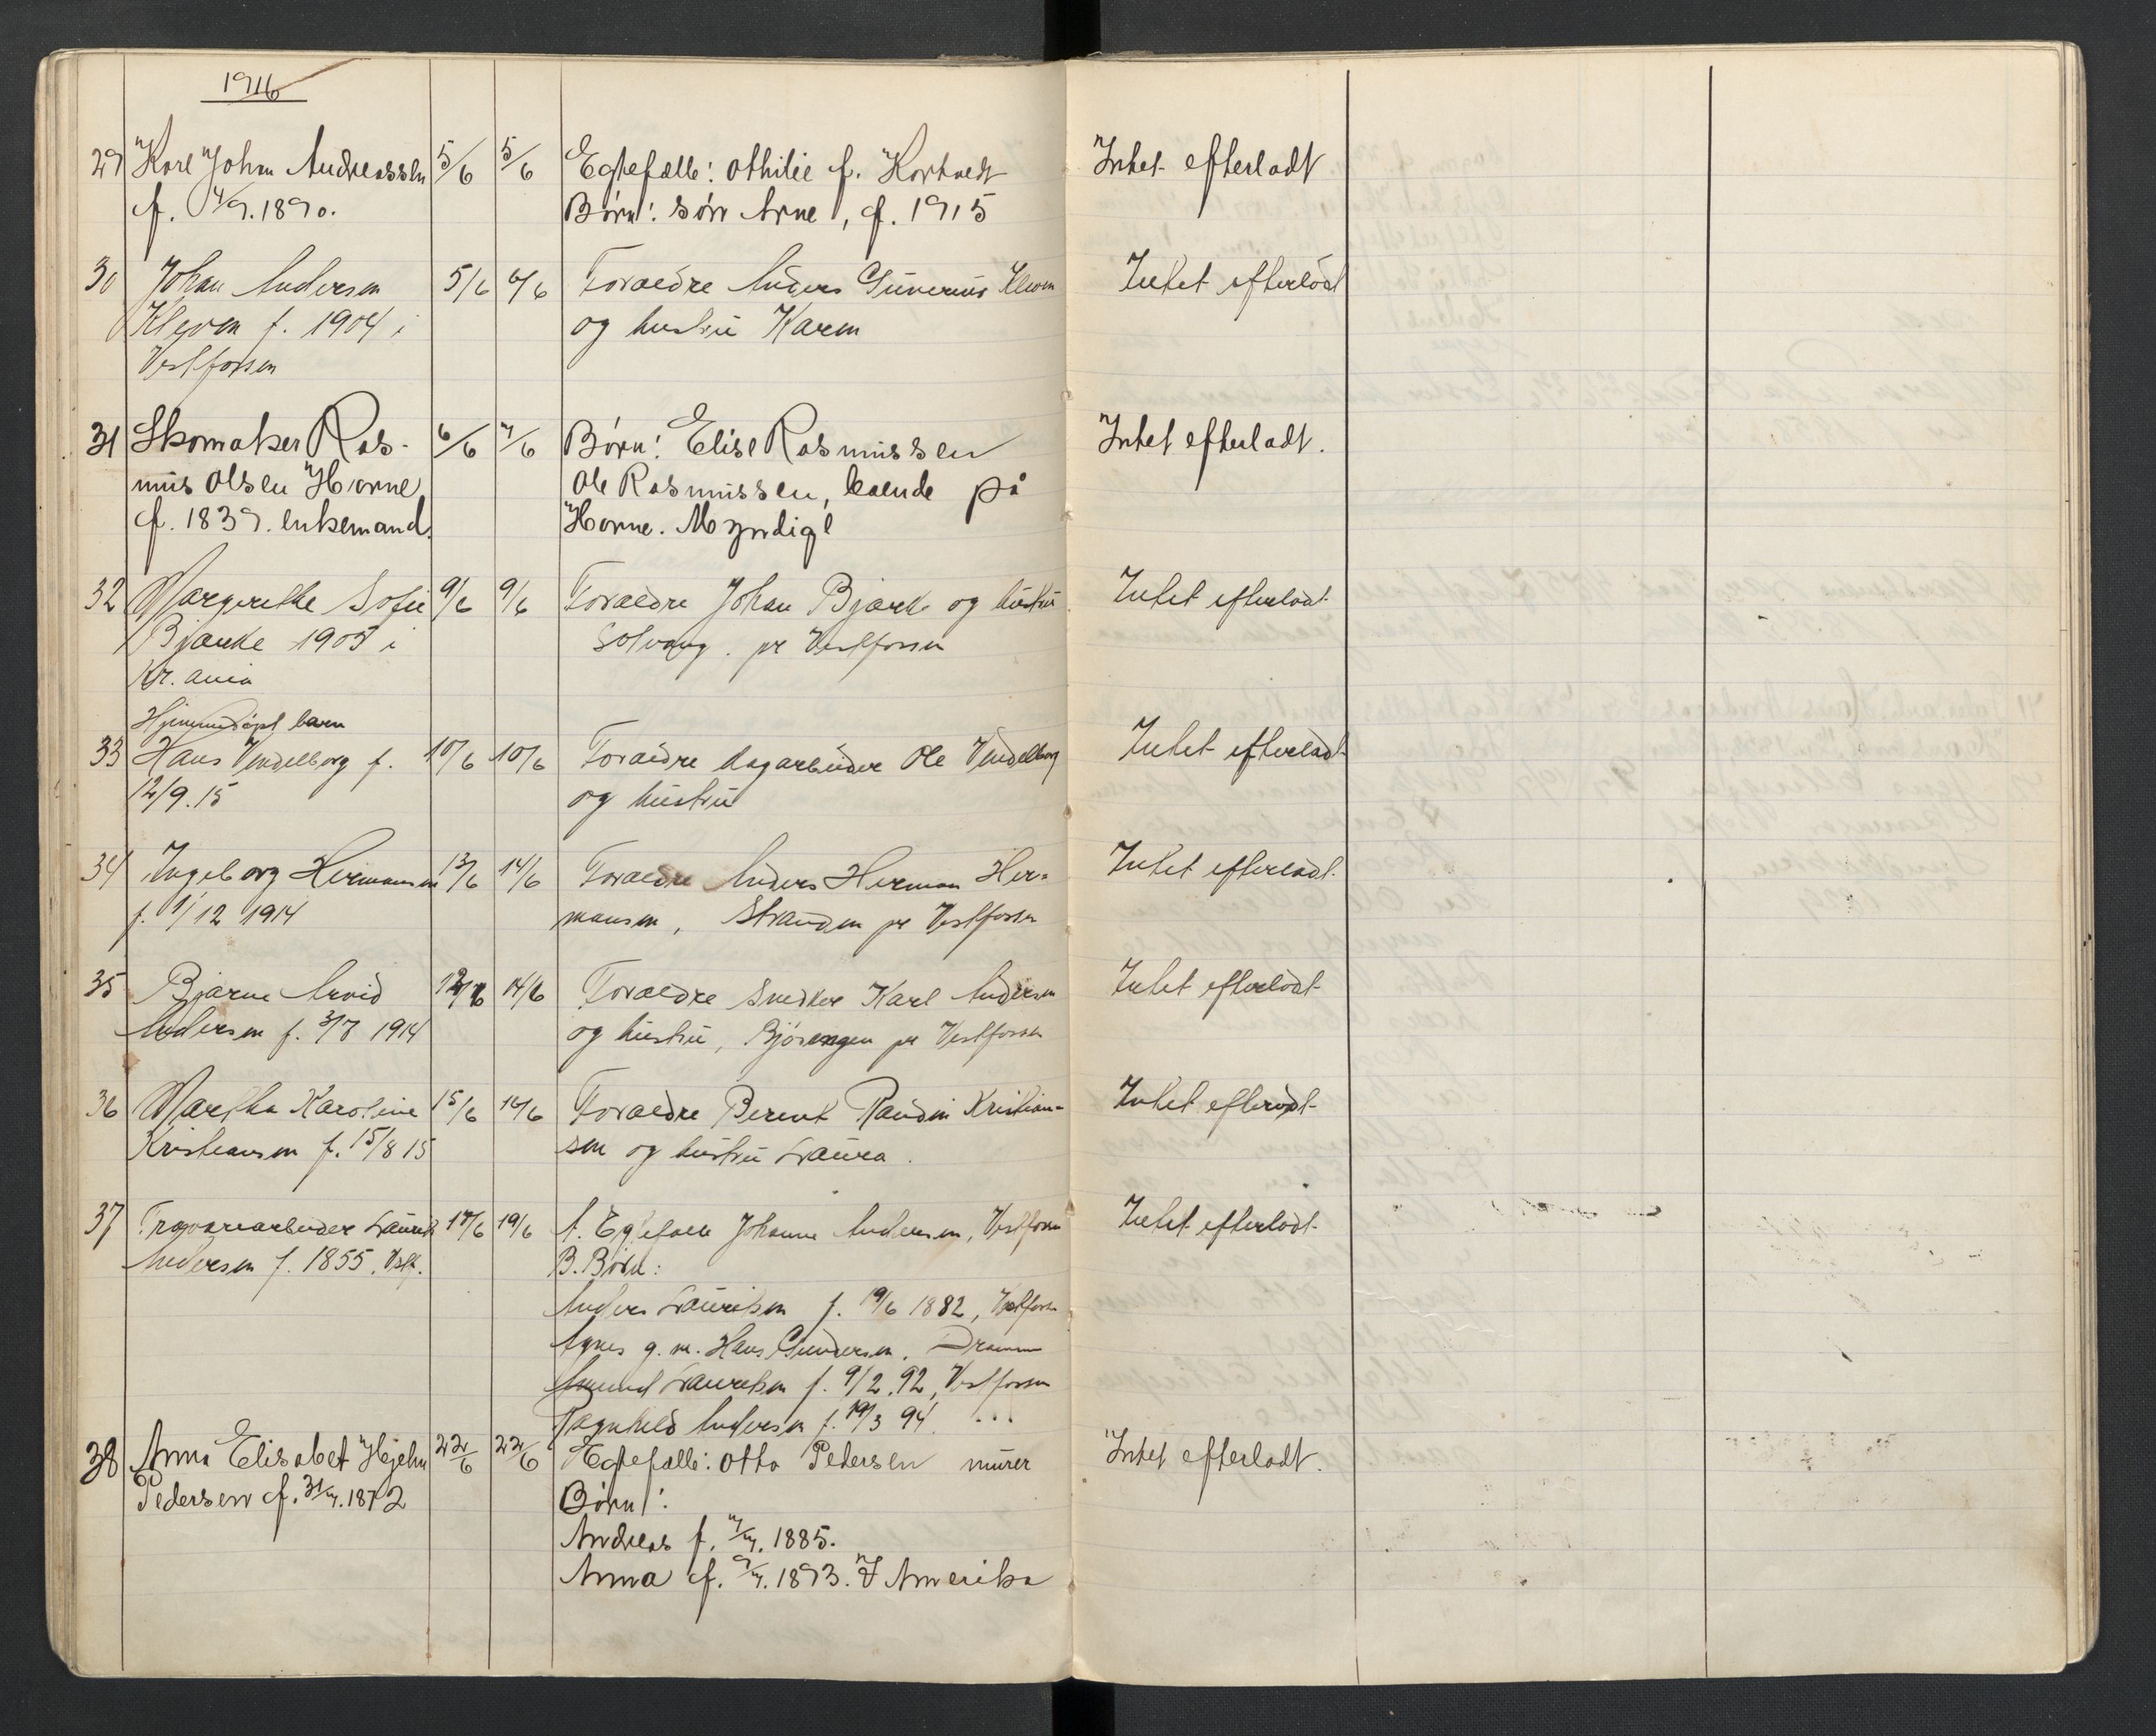 1916
29 Karl Johan Andreassen 5/6 5/6 Egtefælle: Othilie f. Hortvedt Intet efterladt
f. 4/9. 1890. Børn: Søn Arne, f. 1915
30 Johan Andersen 5/6 6/6 Foraldre Anders Gunerius Kleven Intet efterladt
Kleven f. 1904 i og hustru Karen
Vestfossen
31 Skomaker Ras- 6/6 7/6 Børn: Elise Rasmussen Intet efterladt.
mus Olsen Horne Ole Rasmussen, boende på
f. 1839. enkemand. Horne. Myndige
32 Margrethe Sofie 9/6 9/6 Foraldre Johan Bjarke og hustru Intet efterladt
Bjarke 1905 i Solvang. pr Vestfossen
Kr.ania
Hjemmedøpt barn
33 Hans Vendelborg f. 10/6 10/6 Foraldre dagarbeider Ole Vendelborg Intet efterladt
12/9. 15 og hustru
34 Ingeborg Hermansen 13/6 14/6 Foraldre Anders Herman Her- Intet efterladt.
f. 1/12 1914 mansen, Stranden pr Vestfossen
35 Bjarne Arvid 12/6 14/6 Foraldre Snedker Karl Andersen Intet efterladt
Andersen f. 3/7 1914 og hustru, pr Vestfossen
36 Martha Karoline 15/6 16/6 Foraldre Berent Randin Kristian- Intet efterladt
Kristiansen f. 15/8 15 sen og hustru Laura.
37 Trævarearbeider Laurits 17/6 19/6 A. Egtefælle Johanne Andersen, Vestfossen Intet efterladt
Andersen f. 1855. Vestf. B. Børn:
Anders Lauritsen f. 19/6 1882, Vestfossen
Agnes g. m. Hans Gundersen. Drammen
Amund Lauritsen f. 9/2. 92, Vestfossen
Ragnhild Andersen f. 19/3 94. ...
38 Anna Elisabet Hjelm 22/6 22/6 Egtefælle: Otto Pedersen murer Intet efterladt.
Pedersen f. 31/7. 1872 Børn:
Andreas f. 7/7. 1885.
Anna f. 9/7. 1893. I Amerika